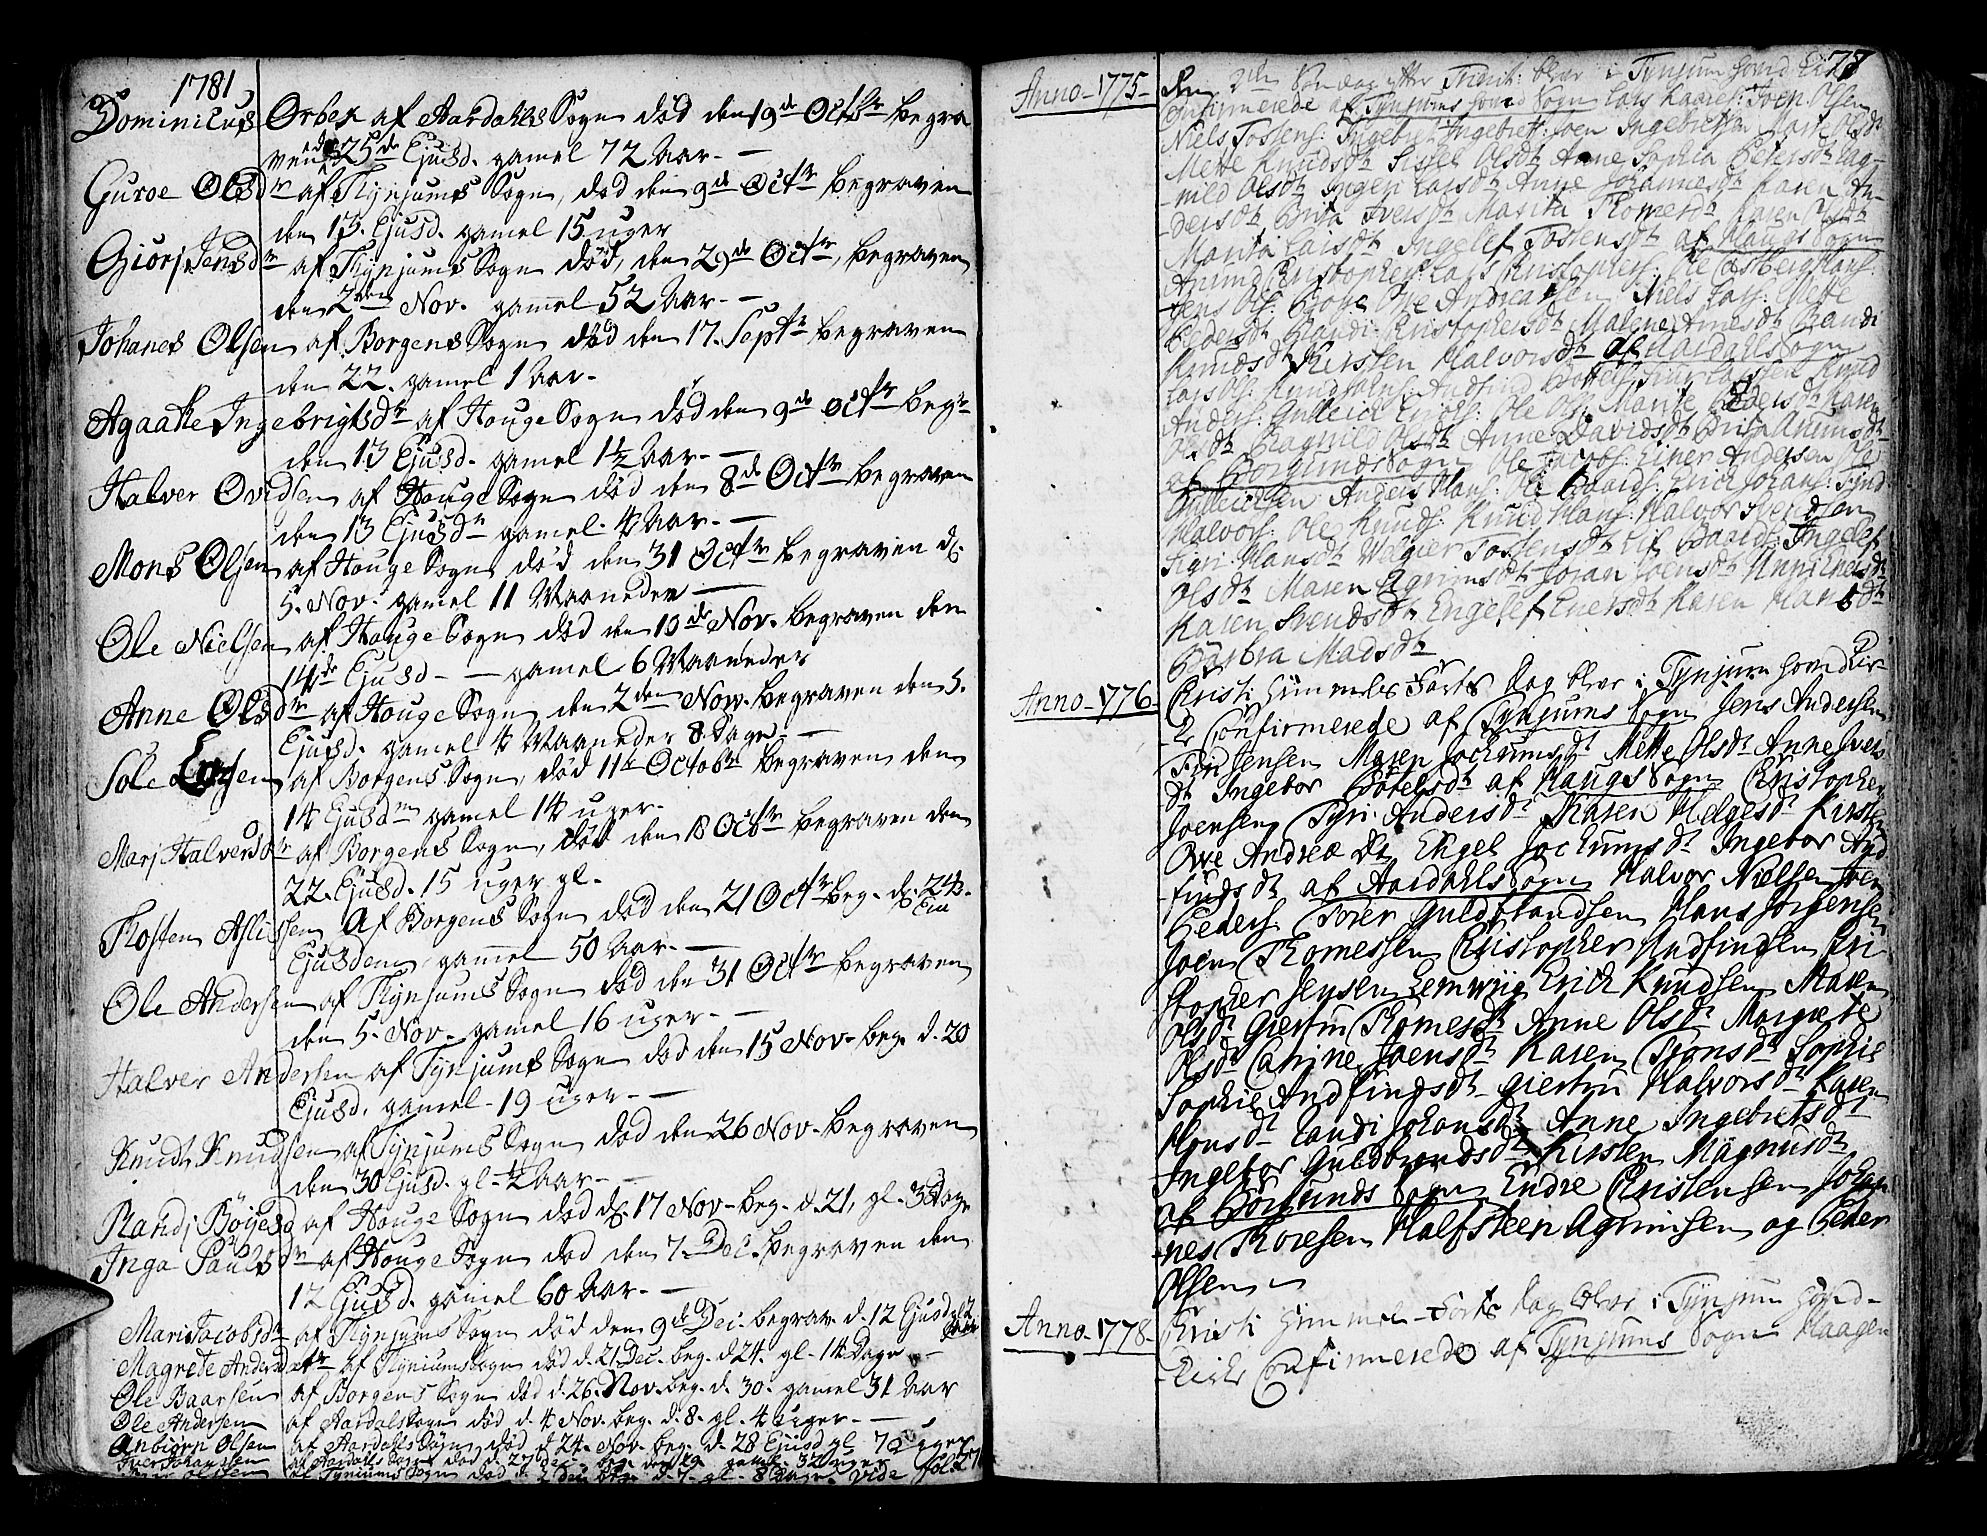 1781
Dominicus Orbek af Aardahls Sogn død den 19de Octbr begra
ven d. 25de Ejusd. gamel 72 Aar. —
Guroe Olsdtr af Thynjums Sogn, død den 9de Octr begraven
den 13. Ejusd. gamel 15 uger
Giørj Jensdtr af Thynjums Sogn død, den 29de Octr, begraven
den 2den Nov. gamel 52 Aar. —
Johanes Olsen af Borgens Sogn død den 17. Septr begraven
den 22. gamel 1 Aar.
Agaathe Ingebrigtsdtr af Houge Sogn død den 9de Octr begr
den 13 Ejusd. gamel 1½ Aar. —
Halver Ovidsen af Houge Sogn død den 8de Octr begraven
den 13 Ejusdn gamel. 4 Aar. —
Mons Olsen af Houge Sogn død den 31 Octr begraven d:
5. Nov. gamel 11 Maaneder —
Ole Nielsen af Houge Sogn død den 10de Nov. begraven den
14de Ejusd — gamel 6 Maaneder
Anne Olsdtr af Houge Sogn den 2den Nov. begraven den 5.
Ejusd. gamel 4 Maaneder 8 Dage. —
Sole Larsen af Borgens Sogn, død 11te Octobr begraven den
14 Ejusdm gamel 14 uger.
Marj Halversdtr af Borgens Sogn, død den 18 Octr begraven den
22. Ejusd. 15 uger gl.
Thosten Aslissen Af Borgens Sogn død den 21 Octr beg. d: 24de
Ejusdem gamel 50 Aar. —
Ole Andersen af Thynjums Sogn død den 31 Octr begraven
den 5. Nov. gamel 16 uger. —
Halver Andersen af Tynjums Sogn død den 15 Nov. beg. d. 20
Ejusd. gamel 19 uger. —
Knudt Knudsen af Tynjums Sogn død den 26 Nov. begraven
den 30 Ejusd. gl. ½ Aar. —
Randj Bøyesd af Houge Sogn død d: 17 Nov. beg. d. 21, gl. 3 Dage
Inga Paulsdtr af Houge Sogn død den 7. Dec. begraven den
12 Ejusd. gamel 60 Aar. —
Mari Jacobsdtr af Thynjums Sogn død den 9de Dec. begrav. d. 12 Ejusd gl 2
Magrete Andersdatr af Tyniums Sogn død d. 21 Dec. beg. d 24. gl. 14 Dage —
Ole Baarsen af Borgens Sogn død d. 26. Nov. beg. d. 30. gamel 31 Aar
Ole Andersen af Aardals Sogn død d. 4 Nov. beg. d. 8. gl. 4 uger. —
Anbiørn Olsen af Aardahls Sogn død d 24. Nov. beg. d. 28 Ejusd gl 7 uger
Iver Johansen af Aardahls Sogn død d. 27 Dec. beg. den 29 gamel 32 uger
Olsen af Tyniums Sogn død d. 2 Dec beg. d. 7. gl. 8 Dage. vide fol. 27
77
Anno 1775 Den 2den Søndag efter Trinit: blev i Tynjum hoved Kir
Confirmerede af Tynjums hoved Sogn Lars Kaares: Joen Olsen
Niels Tostens: Ingebret Ingebrett: Joen Ingebretsen Marte Olsdt
Mette Knudsdt Sissel Olsdt Anne Sophia Pedersdt Rag-
-nild Olsdt Ingeri Larsdt Anne Johannesdt Karen An-
dersdt Brita Iversdt Marita Thomesdt Karen Olsdt
Marita Larsdt Ingelef Tostensdt af Haugs Sogn
Anund Christophers: Lars Christophers: Ole Castbergs Hans:
Jens Ols: Boye Ove Andreasen Niels Lars: Mette
Pedersdt Randi Christophersdt Malene Arnesdt Randi
Knudsdt Kirsten Halvorsdt af Aardahls Sogn
Lars Ols: Knud Johans: Andfind Botels: Iver Larsen Knud
Anders: Gulleick Ericks: Ole Ols: Marite Pedersdt Karen
Olsdt Ragnild Olsdt Anne Davidsdt Brita Anunsdt
af Borgunds Sogn Ole Jacobs: Einer Andersen Ole
Gulleicksen Anders Hans: Ole Baards: Erick Johans: Siund
Halvors: Ole Knuds: Knud Hans: Halvor Svendsen
Sigri Hansdt Welgier Tostensdt Lif Baards: Ingelef
Olsdt Maren Agrimsdt Joran Joensdt Anne Enersdt
Karen Svendsdt Engelef Enersdt Karen Hansdt
Barbra Madsdt
Anno 1776 Christi Himmels Farts Dag blev i Tynjum hoved Kir
ke Confirmerede af Tynjums Sogn Jens Andersen
Find Jensen Maren Jochumsdt Mette Olsdt Anne Ivers
dt Ingebor Botelsdt af Haugs Sogn Christopher
Joensen Syri Andersdt Karen Helgesdt Kirsten
Ove Andreædt Engel Jochumsdt Ingebor And
findsdt af Aardahls Sogn Halvor Nielsen Joen
Peders: Torer Guldbrandsen Hans Jørgensen
Joen Thomessen Christopher Andfindsen Cri-
stopher Jensen Lemwiig Erick Knudsen Maren
Olsdt Giertru Thomesdt Anne Olsdt Margrete
Olsdt Catrine Joensdt Karen Tronsdt Sophie
Sophie Andfindsdt Giertru Halvorsdt Karen
Monsdt Randi Johansdt Anne Ingebretsdt
Ingebor Guldbrandsdt Kirsten Magnusdt
af Borgunds Sogn Endre Christensen Johan
nes Thoresen Halfsteen Agrimsen og Peder
Olsen
Anno 1778 Christi Himmel-Farts Dag blev i Tynjum hoved-
Kirke Confirmerede af Tynjums Sogn Haagen